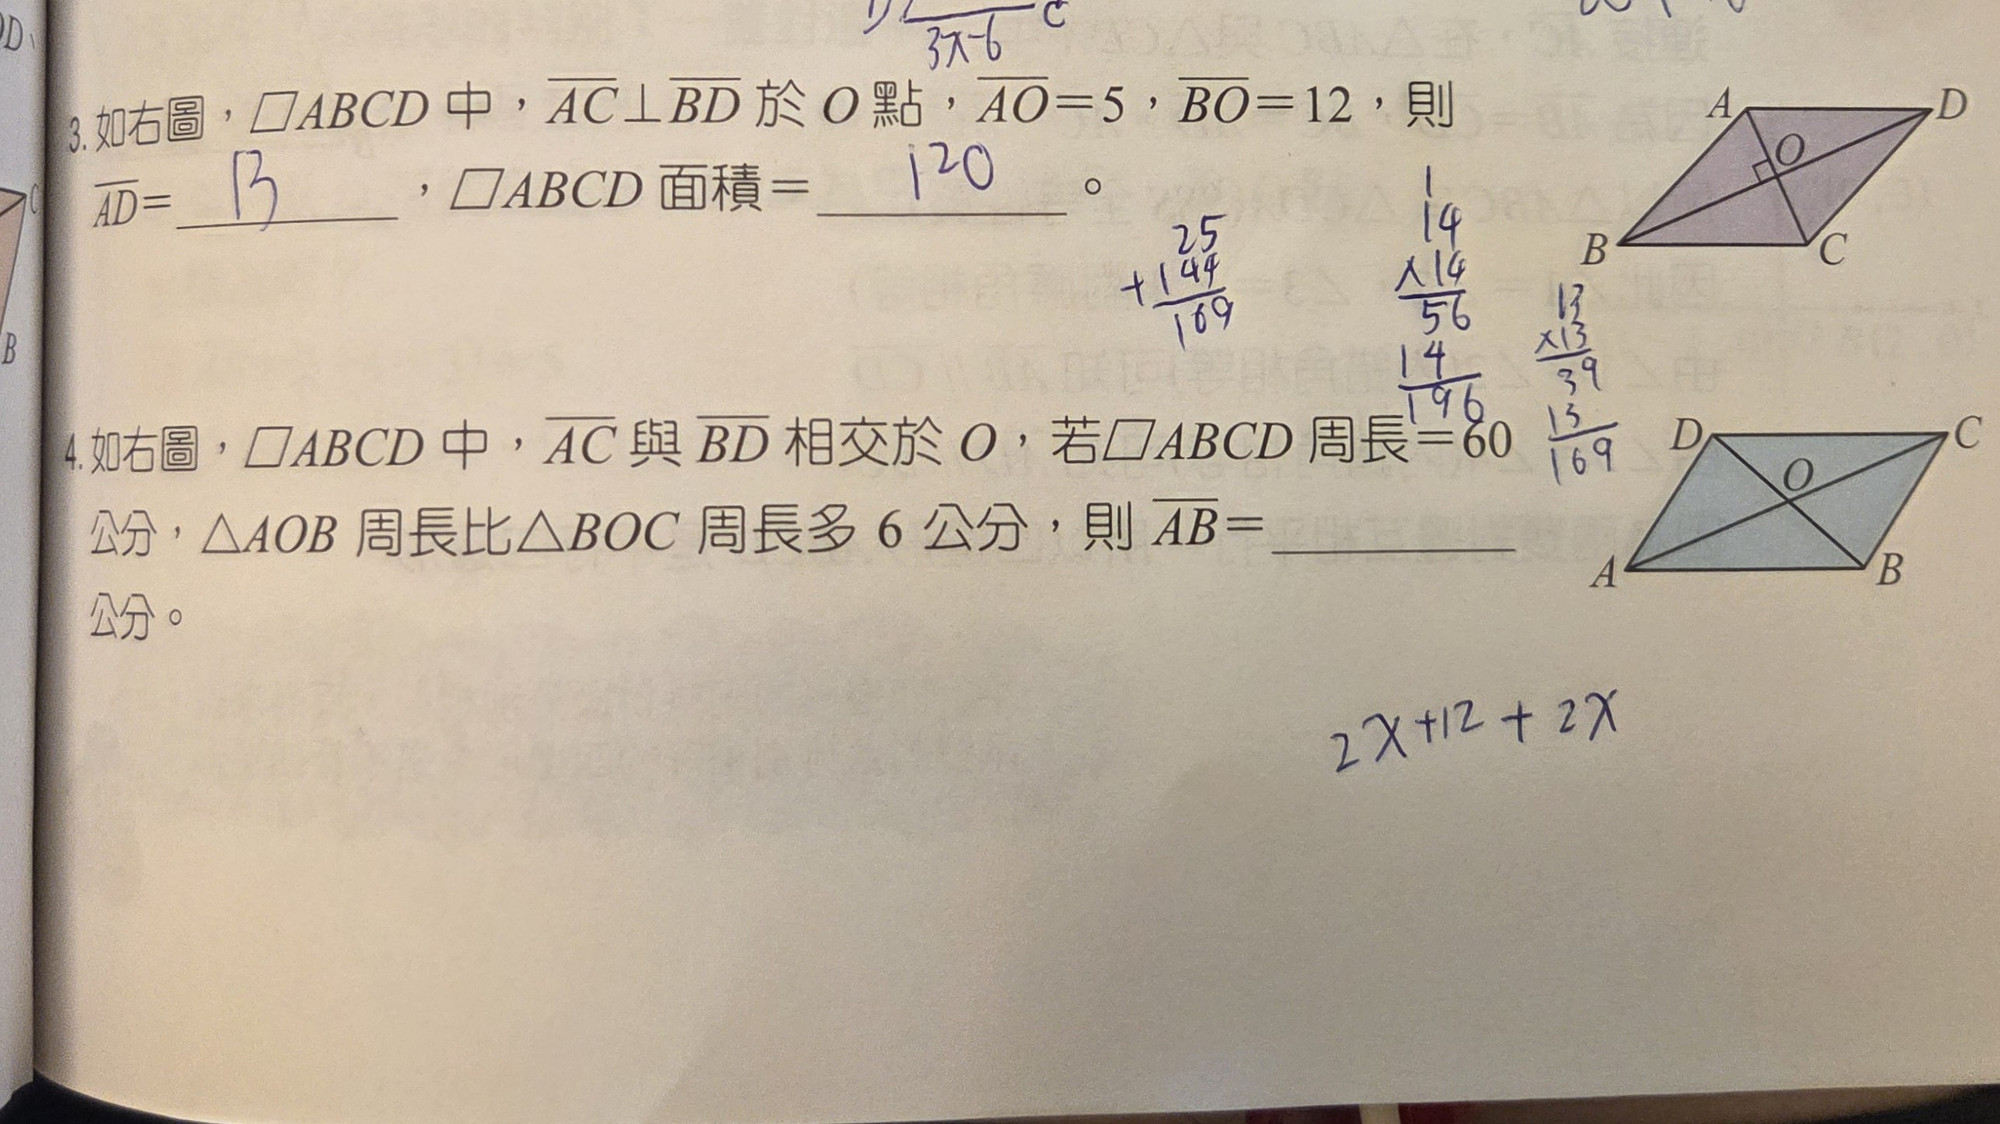 C
3x-6
3. 如右圖，□ABCD 中，AC⊥BD 於 O 點，AO=5，BO=12，則
AD= 13 ，□ABCD 面積= 120 。
A D
O
B C
25
+144
169
1
14
×14
56
14
196
13
×13
39
13
169
4. 如右圖，□ABCD 中，AC 與 BD 相交於 O，若□ABCD 周長=60
公分，△AOB 周長比△BOC 周長多 6 公分，則 AB=
公分。
D C
O
A B
2x+12+2x
C
B